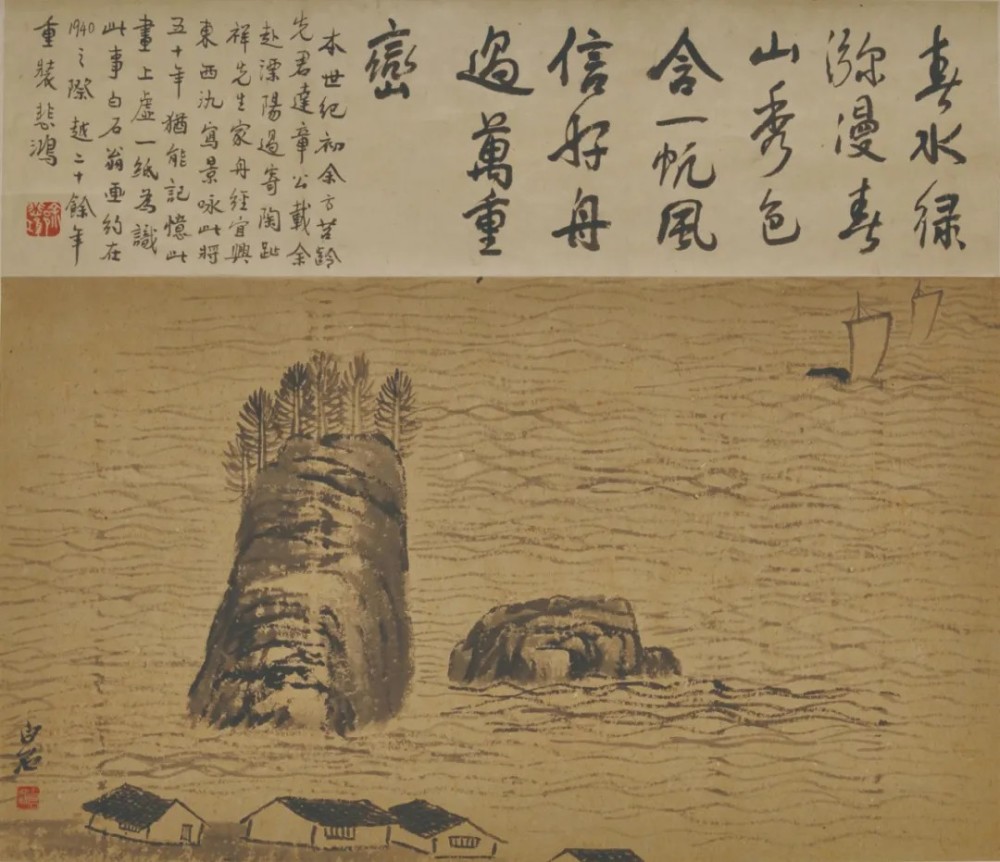 春水綠
瀰漫春
山秀色
含一帆風
信好舟
過萬重
巒
本世紀初余方苕齡
先君達章公載余
赴溧陽過寄陶趾
祥先生家舟經宜興
東西氿寫景咏此將
五十年猶能記憶此
畫上虛一紙為識
此事白石翁画約在
1940之際越二十餘年
重裝悲鴻
白石